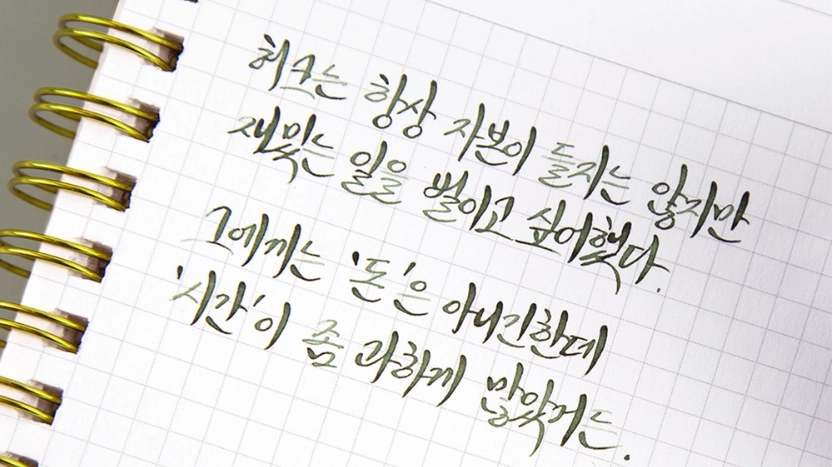 허크는 항상 자본이 들지는 않지만
재밌는 일을 벌이고 싶어했다.
그에게는 '돈'은 아니긴한데
'시간'이 좀 과하게 많았거든.